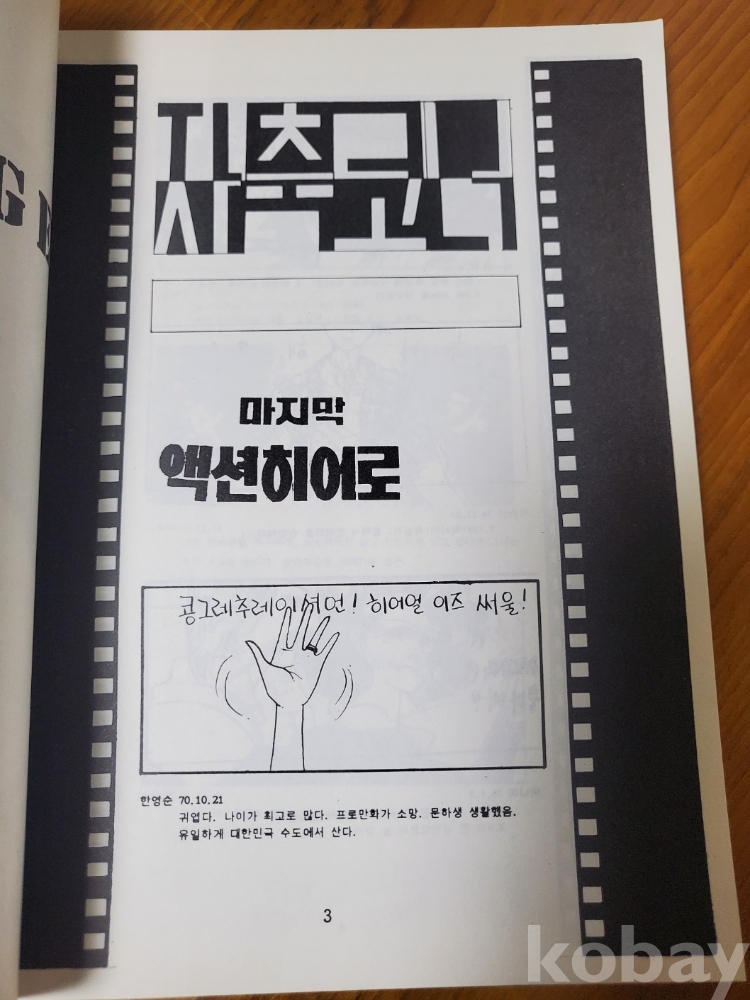 GE
자축코너
마지막
액션히어로
콩그레츄레이션! 히어얼 이즈 써울!
한영순 70.10.21
귀엽다. 나이가 최고로 많다. 프로만화가 소망. 문하생 생활했음.
유일하게 대한민국 수도에서 산다.
3
kobay